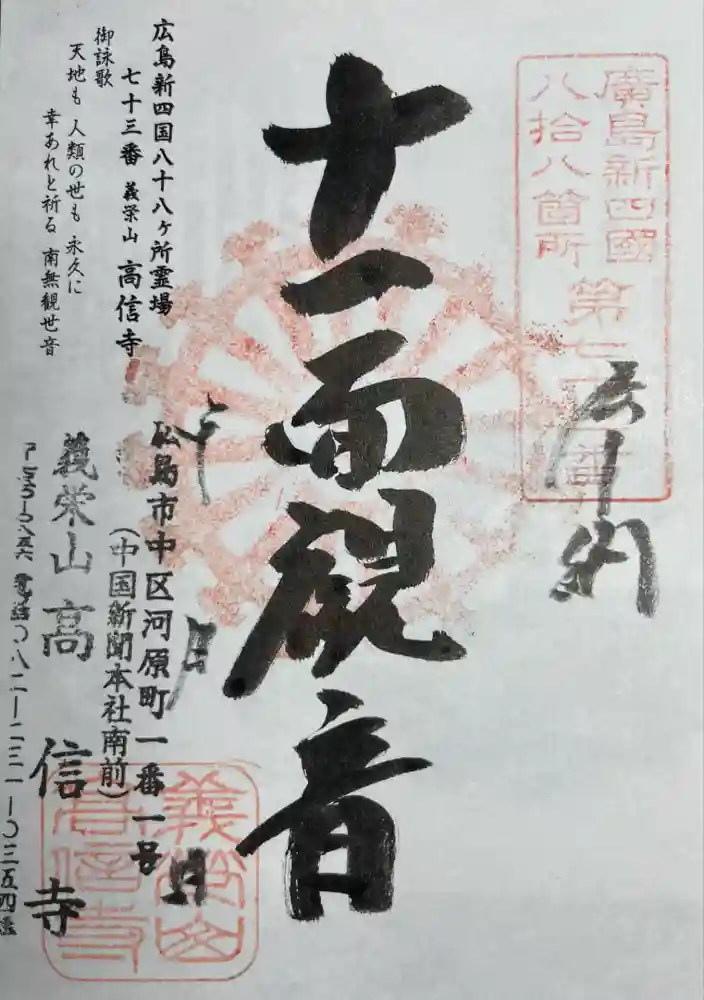 廣島新四國
八拾八箇所
第七十三番
奉納
十一面観音
広島新四国八十八ヶ所霊場
七十三番 義栄山 高信寺
御詠歌
天地も 人類の世も 永久に
幸あれと祈る 南無観世音
年
月
日
広島市中区河原町一番一号
(中国新聞本社南前)
義栄山 高信寺
電話〇八二-二三一-〇三五四
義栄山
高信寺